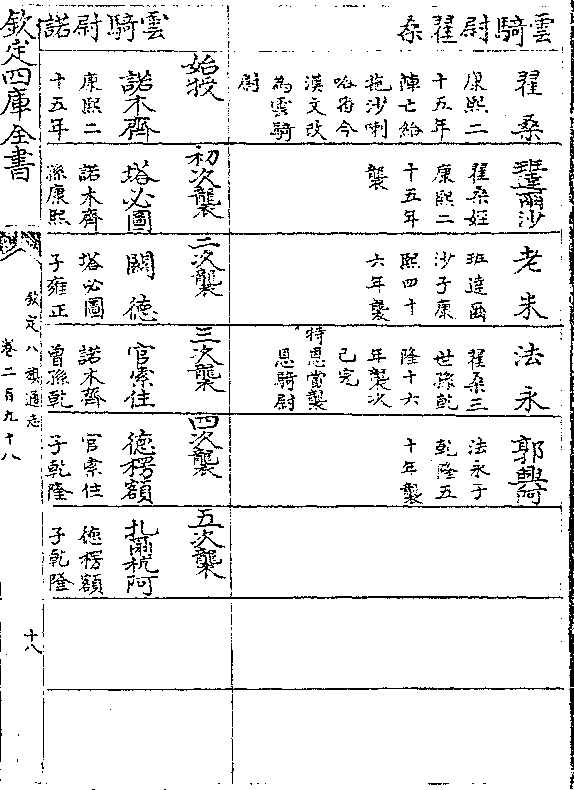 雲騎尉翟桑
翟桑
康熙二
十五年
陣亡給
拖沙喇
哈番今
漢文改
為雲騎
尉
班達爾沙
翟桑姪
康熙二
十五年
襲
老米
班達爾
沙子康
熙四十
六年襲
法永
翟桑三
世孫乾
隆十六
年襲次
已完
特恩當襲
恩騎尉
郭興阿
法永子
乾隆五
十年襲
雲騎尉諾
始授
初次襲
二次襲
三次襲
四次襲
五次襲
諾木齊
康熙二
十五年
塔必圖
諾木齊
孫康熙
闕德
塔必圖
子雍正
官索住
諾木齊
曾孫乾
德楞額
官索住
子乾隆
扎爾杭阿
德楞額
子乾隆
欽定四庫全書
欽定八旗通志
卷二百九十八
十八